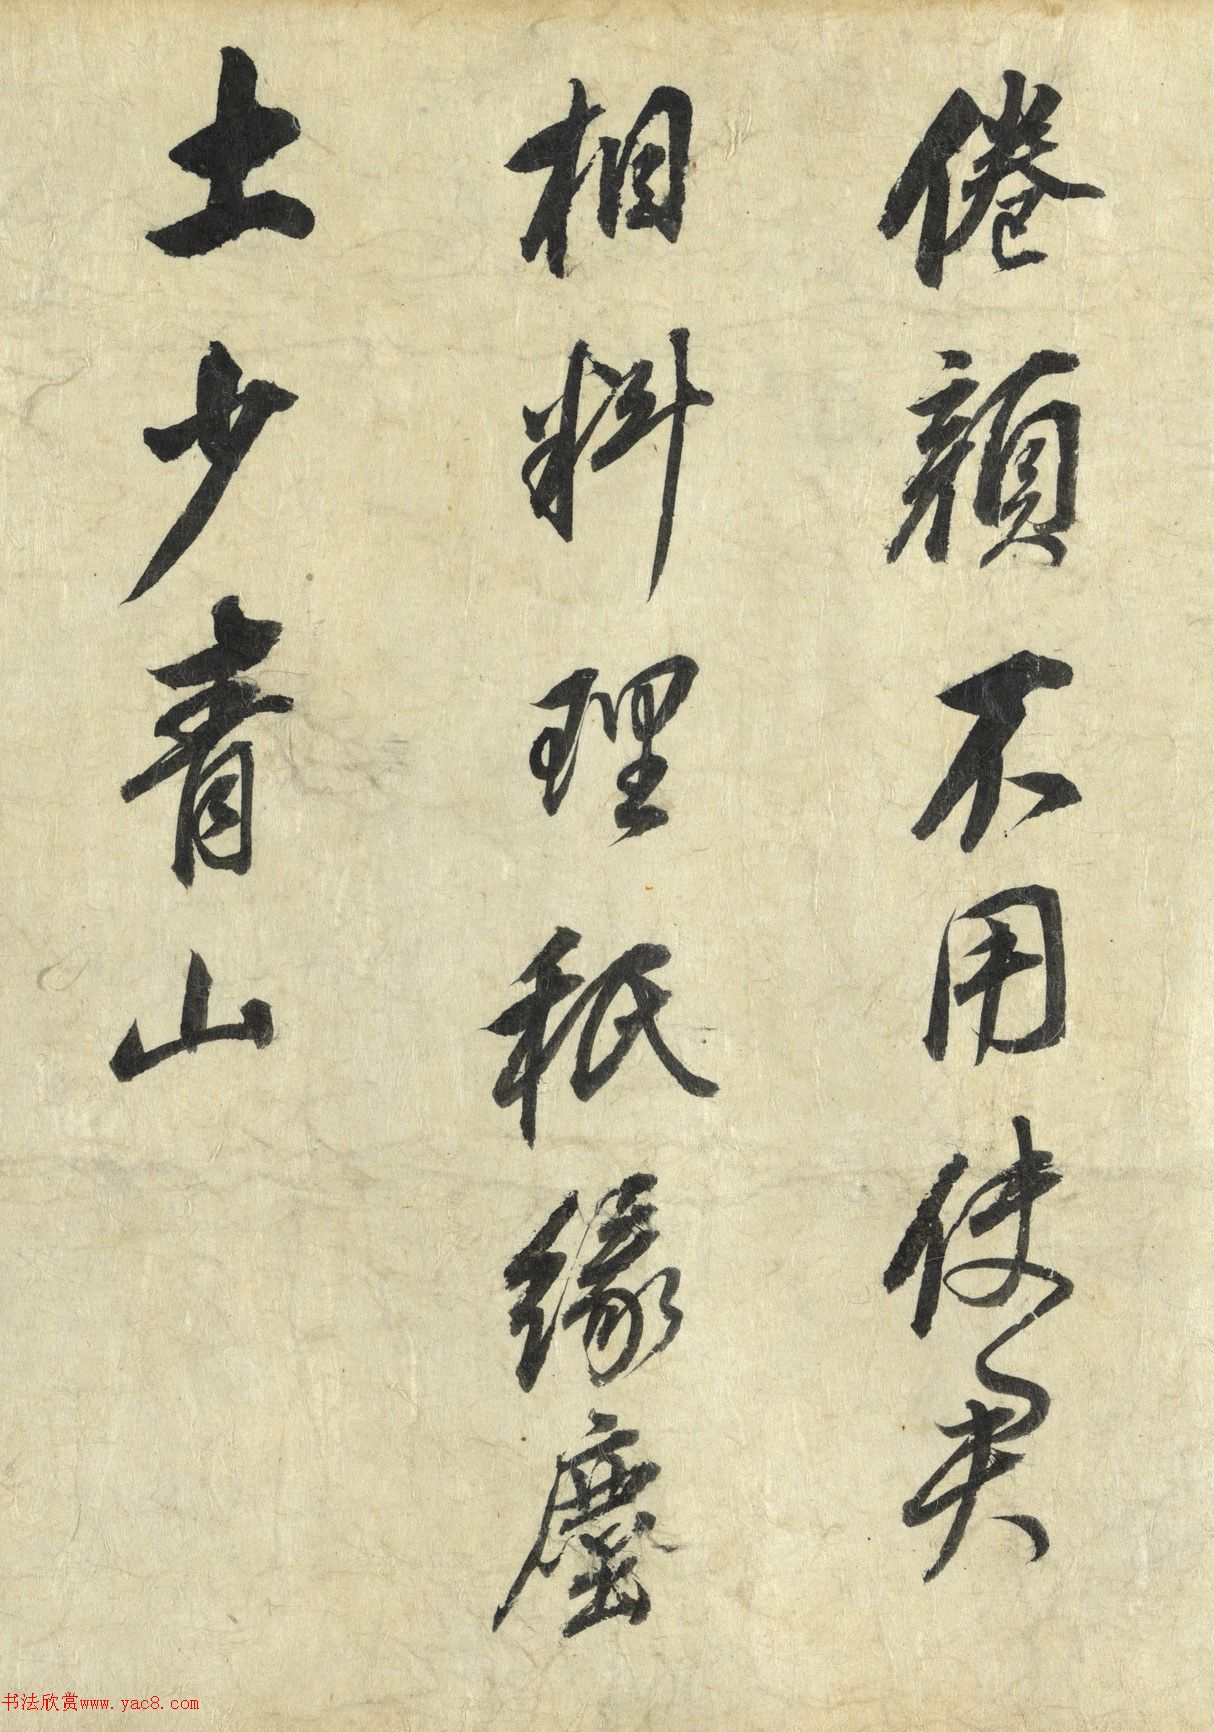 倦顏不用使君
相料理秖緣塵
土少青山
书法欣赏www.yac8.com